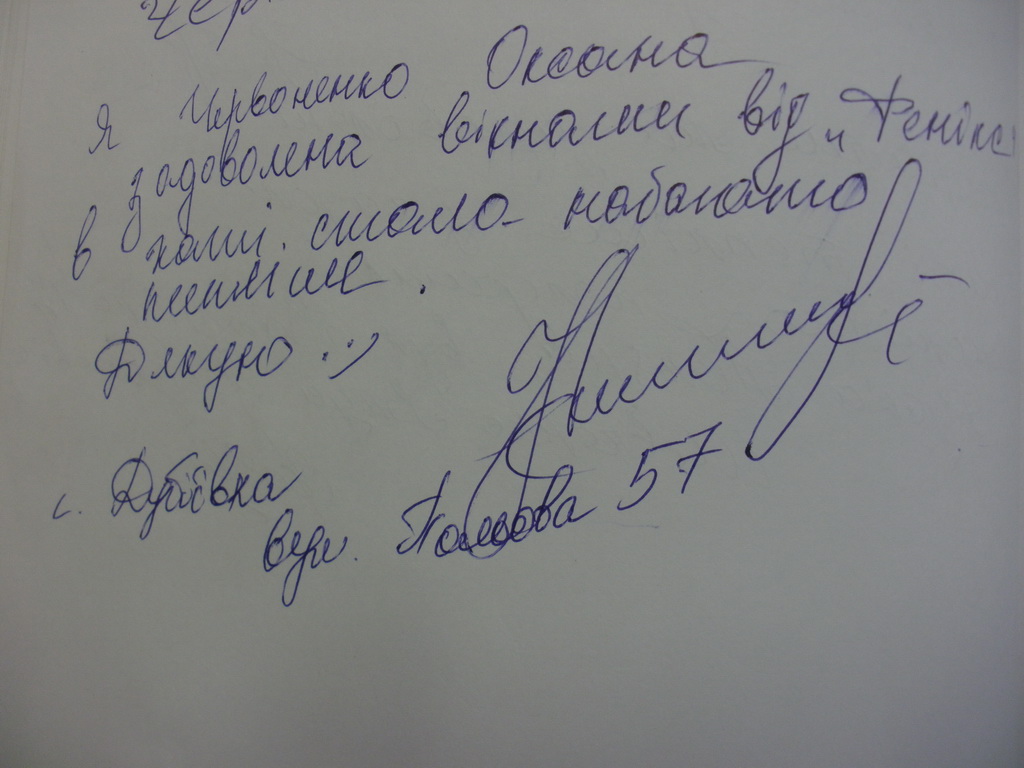 Чер
Я Червоненко Оксана
задоволена вікнами від "Фенікс
в хаті стало набагато
тепліше.
Дякую :)
с. Дубіївка
вул. 57